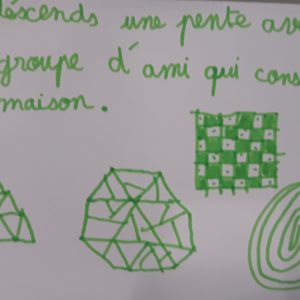 déscends une pente av
groupe d'ami qui cons
maison.